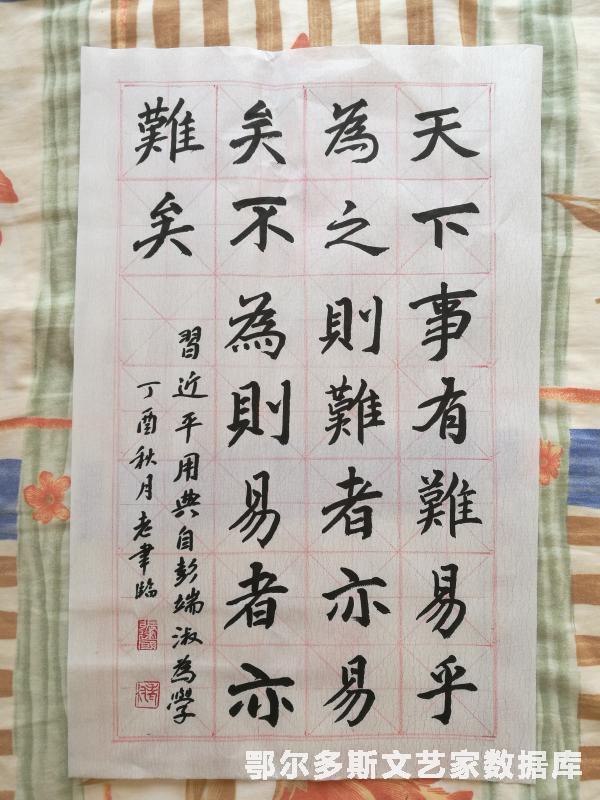 天下事有難易乎
為之則難者亦易
矣不為則易者亦
難矣
習近平用典自彭端淑為學
丁酉秋月老聿臨
鄂尔多斯文艺家数据库